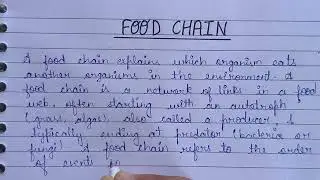 FOOD CHAIN
A food chain explains which organism eats
another organisms in the environment. A
food chain is a network of links in a food
web, often starting with an autotroph
(grass, algae), also called a producer, &
typically ending at predator (bacteria or
fungi). A food chain refers to the order
of events